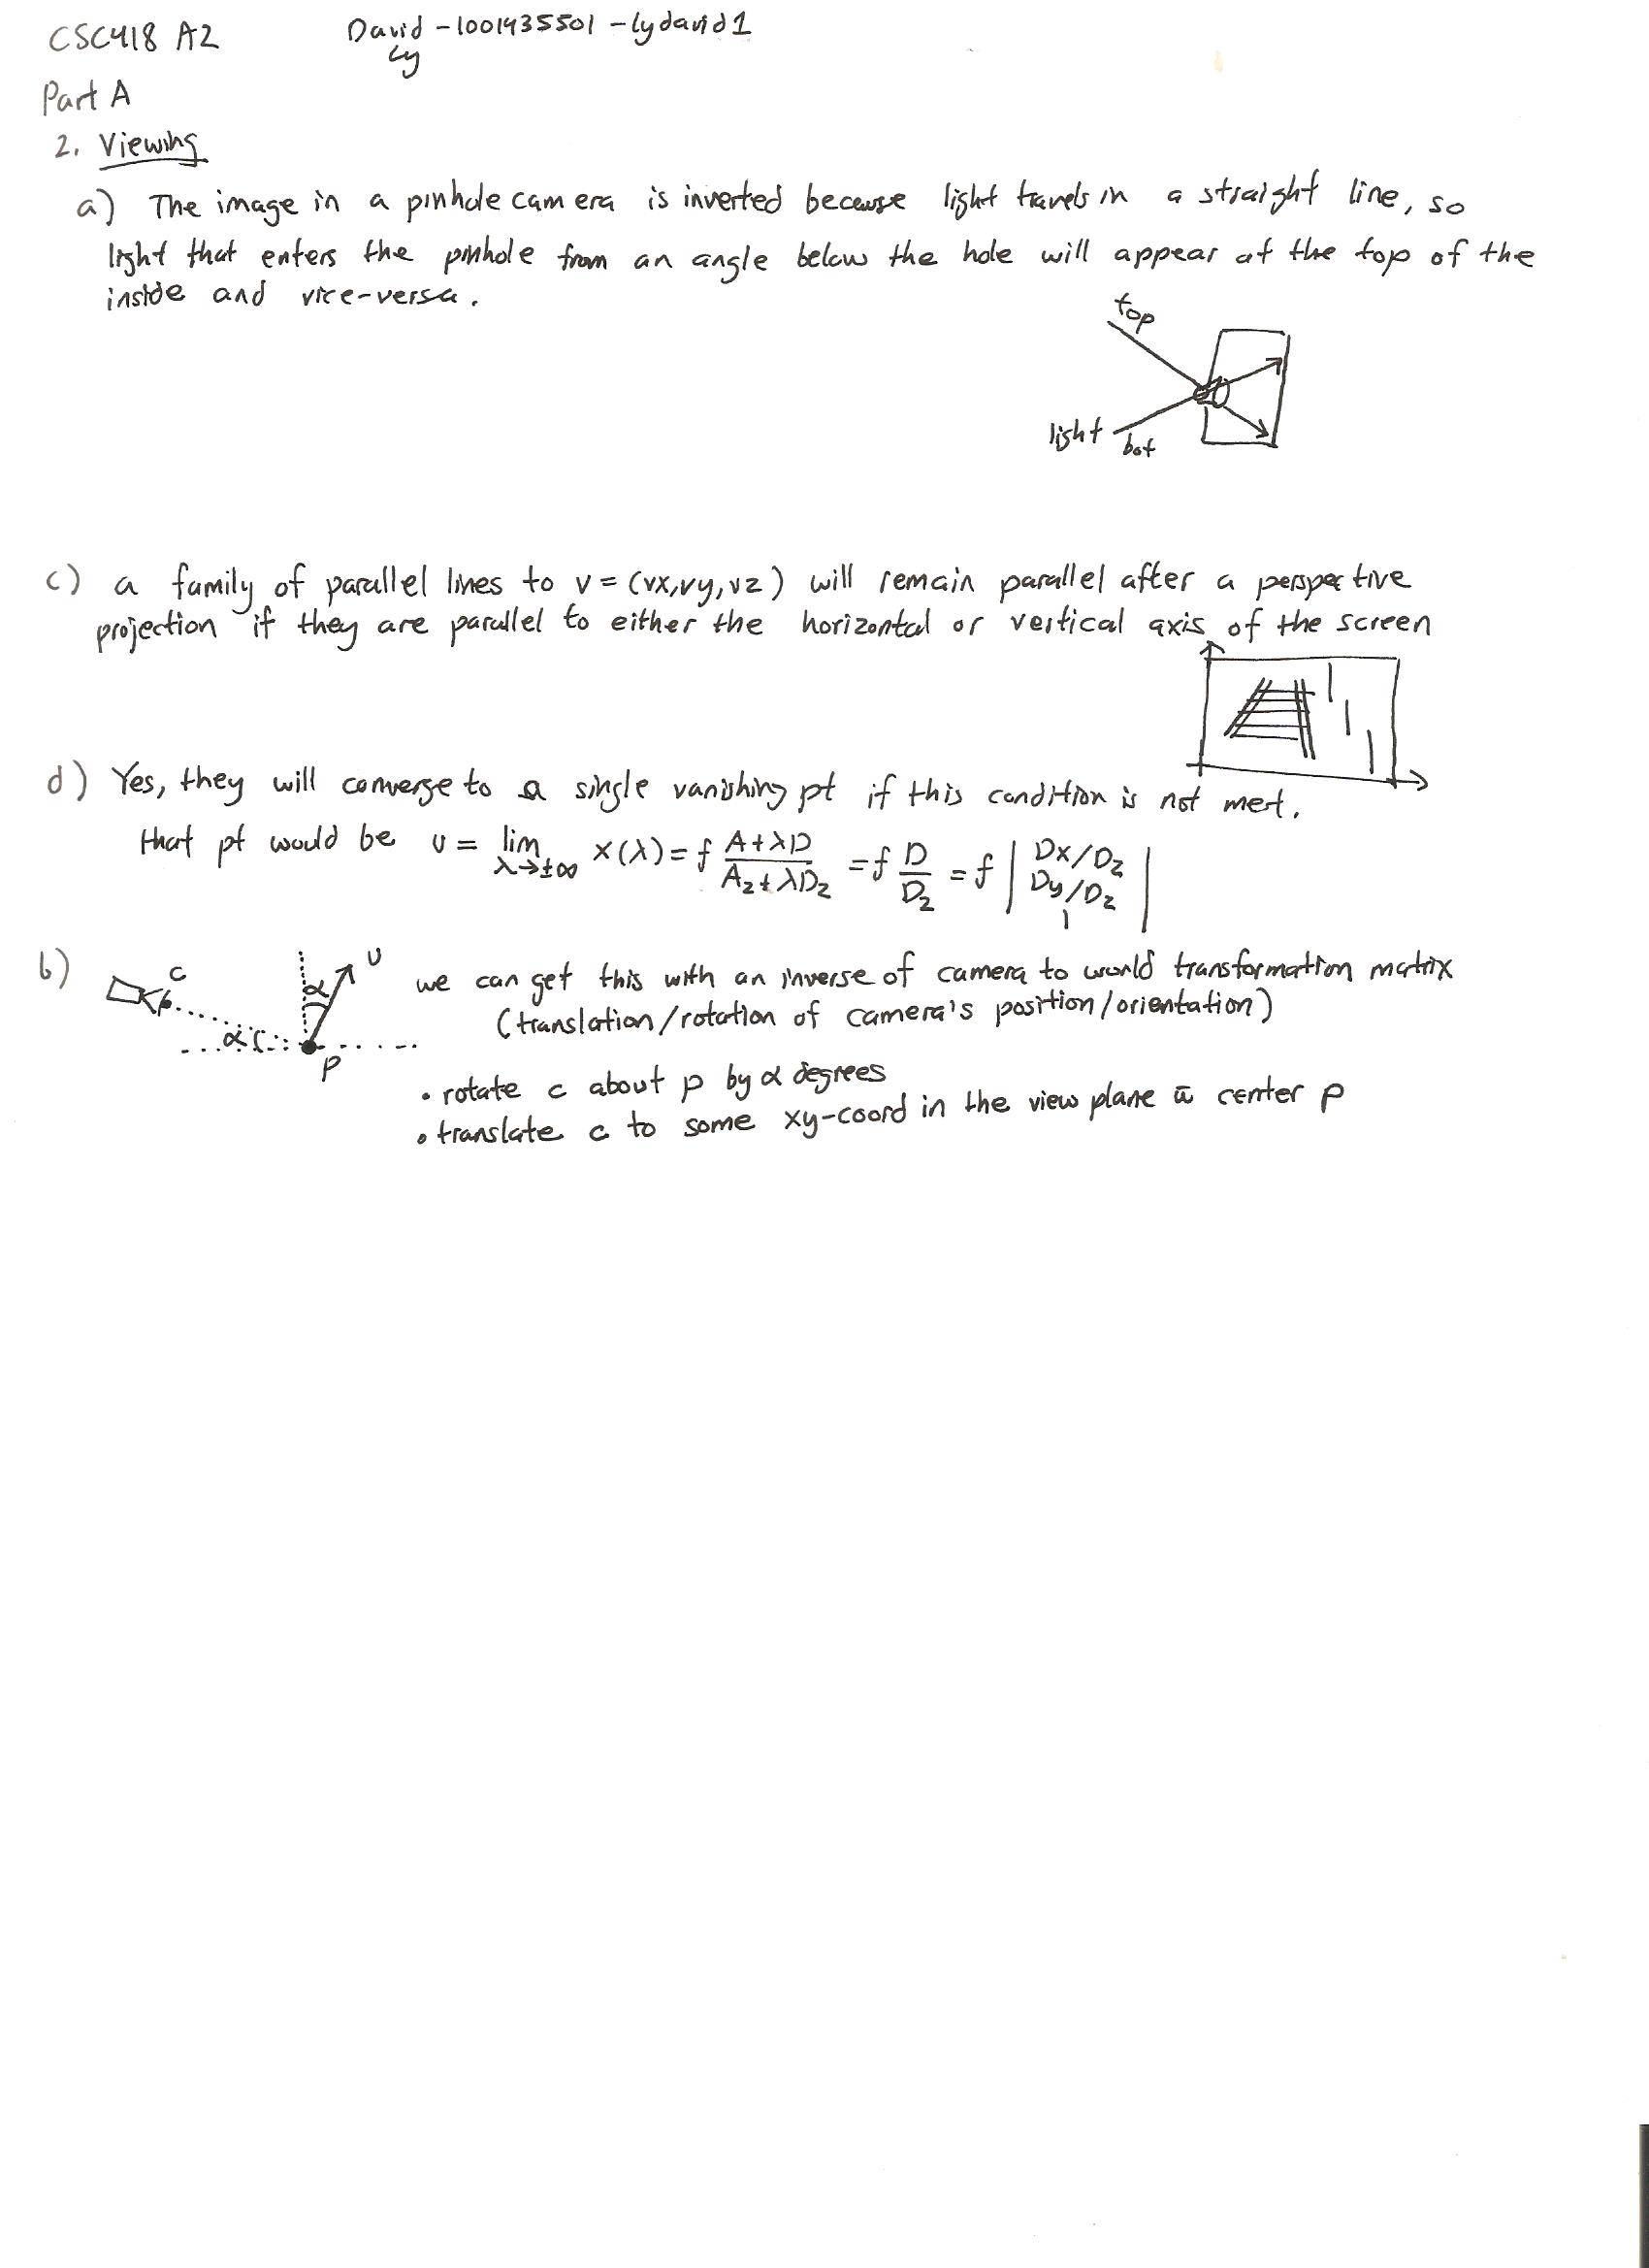 CSC418 A2 David - 1001435501 - lydavid1
Ly
Part A
2. Viewing
a) The image in a pinhole camera is inverted because light travels in a straight line, so
light that enters the pinhole from an angle below the hole will appear at the top of the
inside and vice-versa.
top
light
bot
c) a family of parallel lines to v = (vx,vy,vz) will remain parallel after a perspective
projection if they are parallel to either the horizontal or vertical axis of the screen
d) Yes, they will converge to a single vanishing pt if this condition is not met.
that pt would be v = lim λ→±∞ X(λ) = f (A+λD)/(A_z+λD_z) = f D/D_z = f | Dx/Dz Dy/Dz 1 |
b) c α α U P
we can get this with an inverse of camera to world transformation matrix
(translation/rotation of camera's position/orientation)
• rotate c about p by α degrees
• translate c to some xy-coord in the view plane w̄ center p